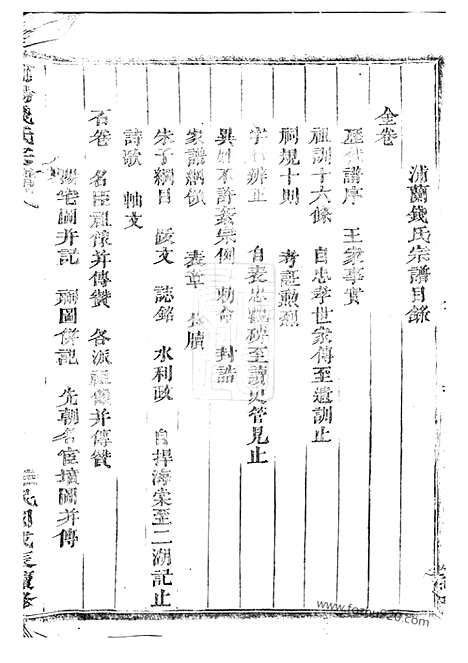 浦蘭錢氏宗譜目錄
全卷
歷代譜序 王家事實
祖訓十六條 自忠孝世家傳至遺訓止
祠規十則 考証勲烈
字 辨止 自表忠觀碑至讀史管見止
異姓不許紊宗例 勅命 封誥
家譜綱領 表章 牘
朱子綱目 疏文 誌銘 水利政 自捍海棠至二湖記止
詩歌 軸文
百卷 名臣祖像并傳贊 各派祖像并傳贊
陽宅圖并記 祠圖併記 先朝名宦墳圖并傳
錢氏宗譜
民國戊辰續修
www.foxhu920.com